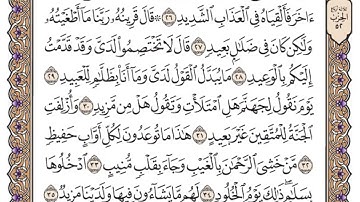 ءَاخَرَ فَأَلْقِيَاهُ فِي ٱلْعَذَابِ ٱلشَّدِيدِ ٢٦ ۞ قَالَ قَرِينُهُۥ رَبَّنَا مَآ أَطْغَيْتُهُۥ
وَلَٰكِن كَانَ فِي ضَلَٰلٍۭ بَعِيدٍ ٢٧ قَالَ لَا تَخْتَصِمُوا۟ لَدَيَّ وَقَدْ قَدَّمْتُ
إِلَيْكُم بِٱلْوَعِيدِ ٢٨ مَا يُبَدَّلُ ٱلْقَوْلُ لَدَيَّ وَمَآ أَنَا۠ بِظَلَّٰمٍ لِّلْعَبِيدِ ٢٩
يَوْمَ نَقُولُ لِجَهَنَّمَ هَلِ ٱمْتَلَأْتِ وَتَقُولُ هَلْ مِن مَّزِيدٍ ٣٠ وَأُزْلِفَتِ
ٱلْجَنَّةُ لِلْمُتَّقِينَ غَيْرَ بَعِيدٍ ٣١ هَٰذَا مَا تُوعَدُونَ لِكُلِّ أَوَّابٍ حَفِيظٍ
٣٢ مَّنْ خَشِيَ ٱلرَّحْمَٰنَ بِٱلْغَيْبِ وَجَآءَ بِقَلْبٍ مُّنِيبٍ ٣٣ ٱدْخُلُوهَا
بِسَلَٰمٍ ۖ ذَٰلِكَ يَوْمُ ٱلْخُلُودِ ٣٤ لَهُم مَّا يَشَآءُونَ فِيهَا وَلَدَيْنَا مَزِيدٌ ٣٥
الحزب
٥٢